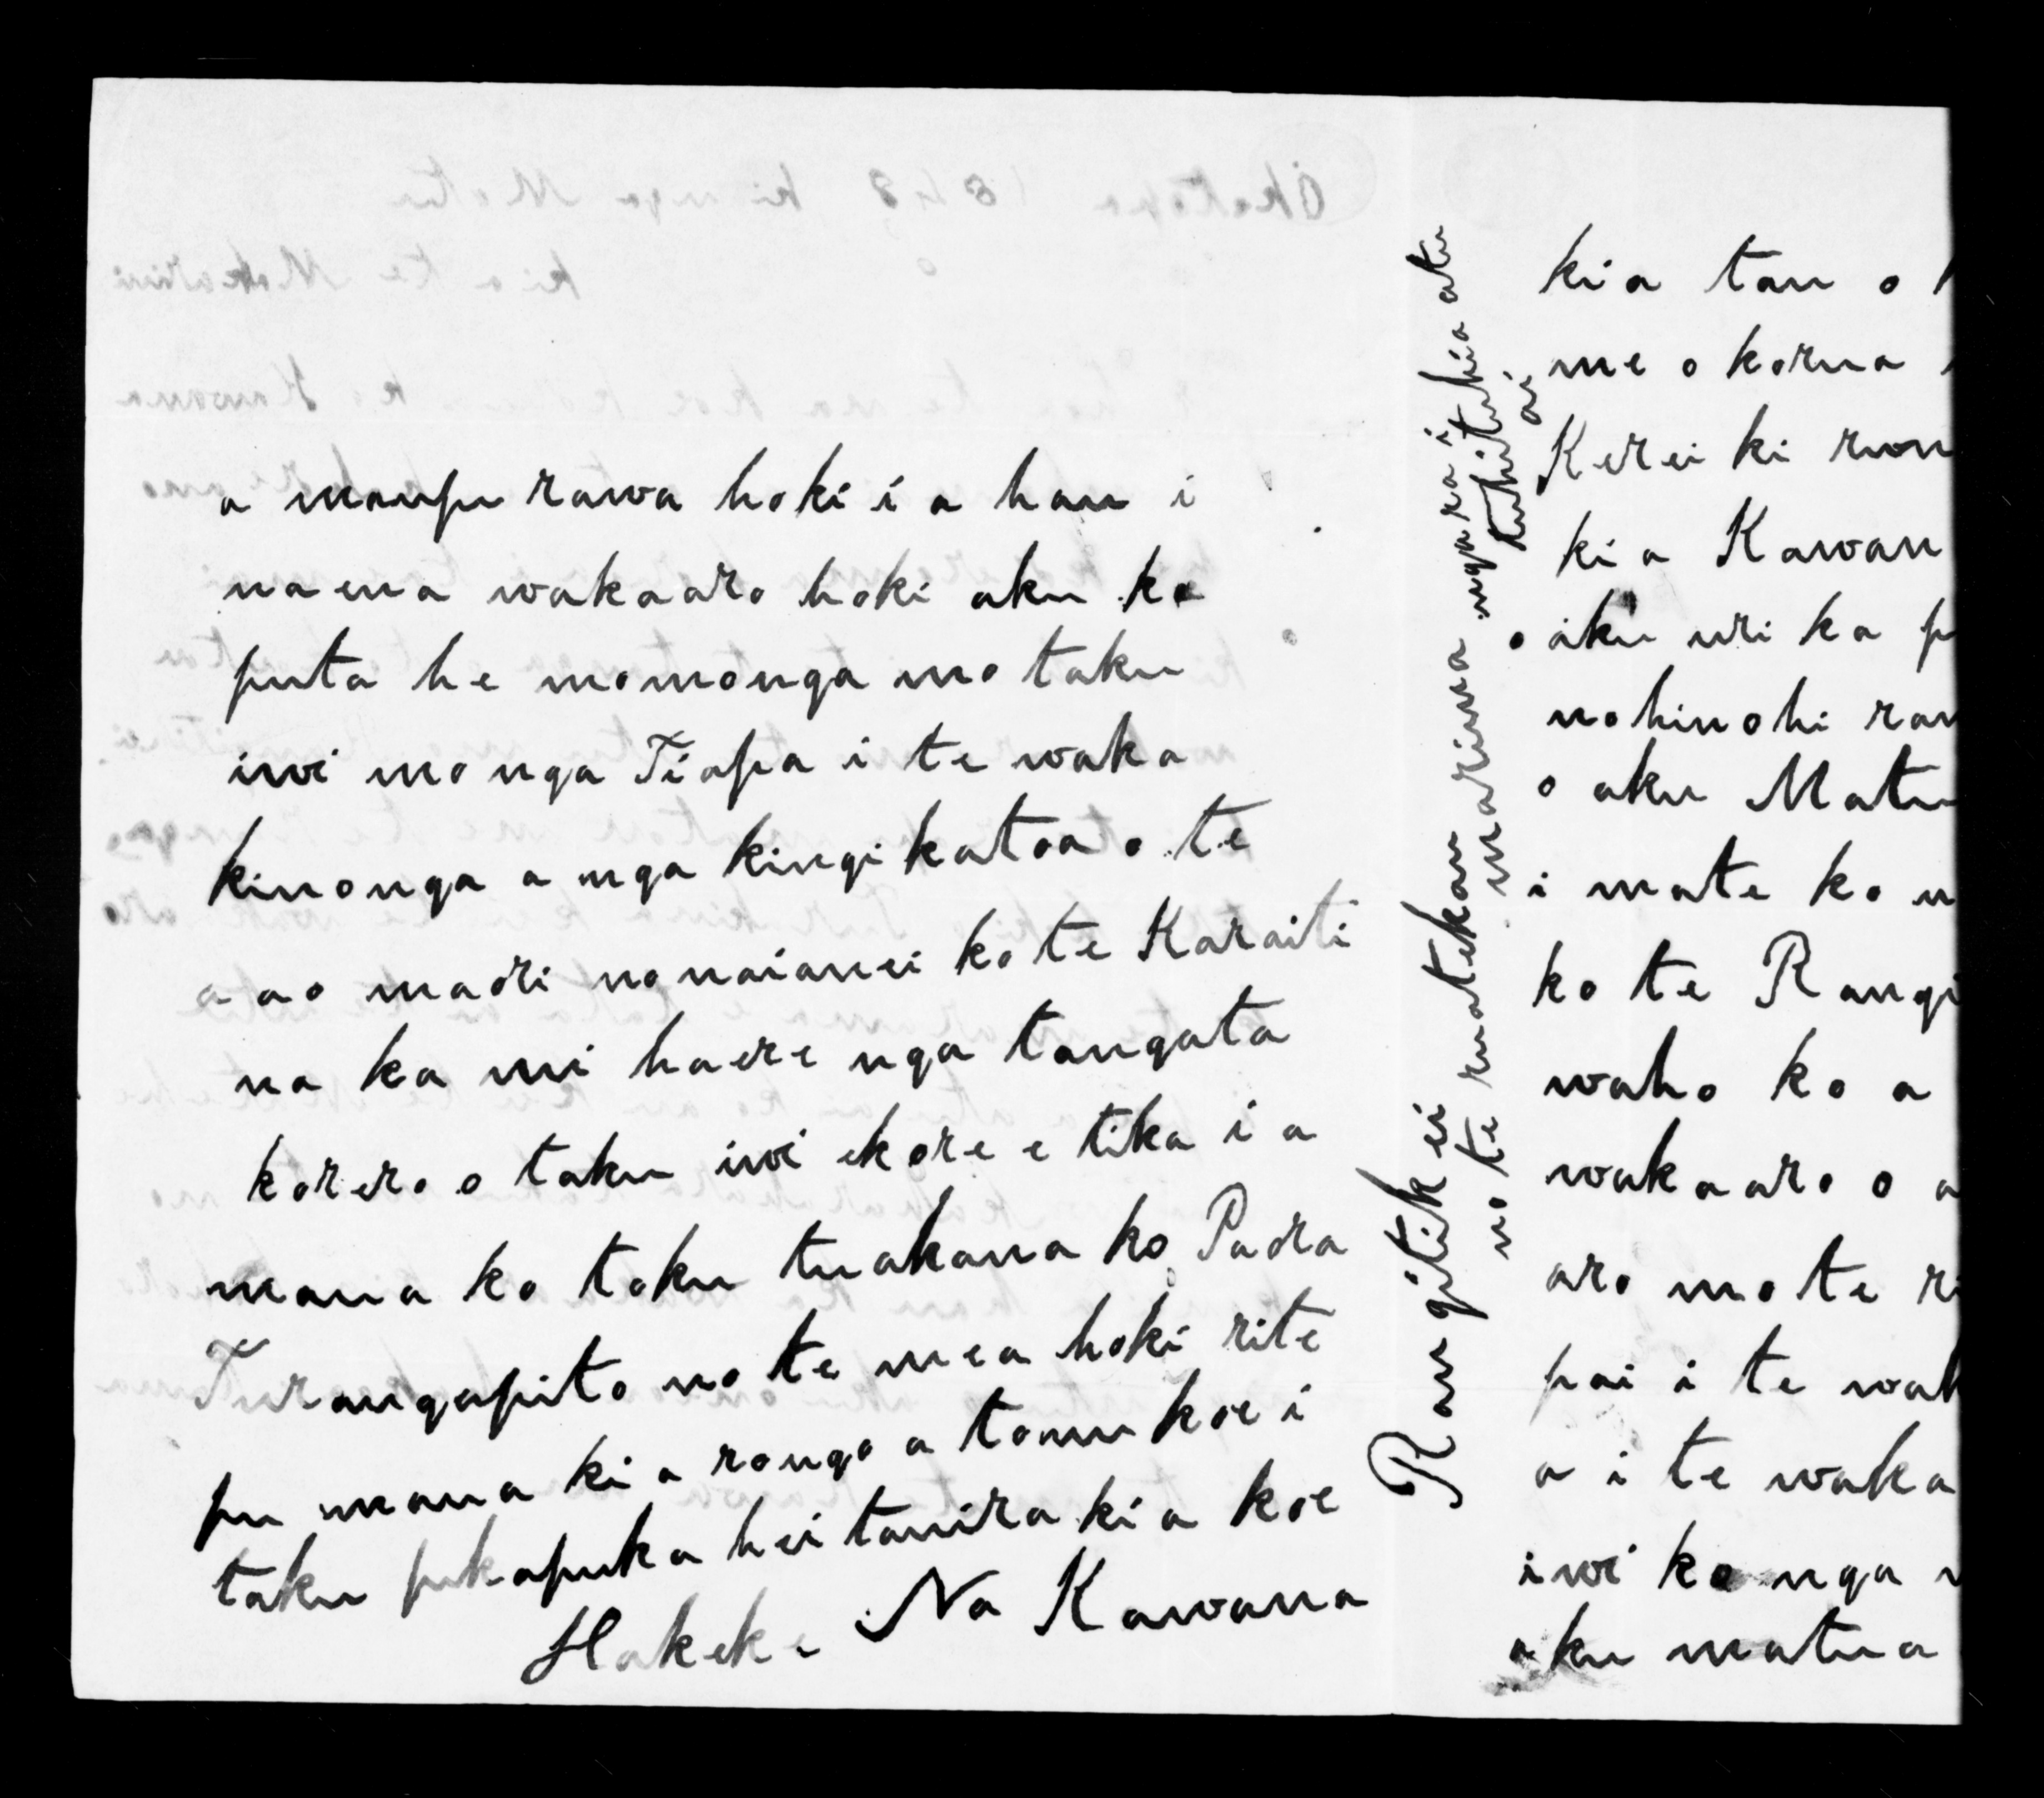 a maupu rawa hoki i a hau i
na ena wakaaro hoki aku ka
puta he momonga mo taku
iwi mo nga Tiapa i te waka
kinonga a nga kingi katoa o te
a ao maori no naianei ko te Karaiti
na ka mi haere nga tangata
korero o taku iwi ekore e tika i a
mana ko toku tuakana ko Paora
Turangapito no te mea hoki rite
pu mana ki a rongo a tomu koe i
taku pukapuka hei tauira ki a koe
Na Kawana
Hakeke
Rangitikei
no te ruatekau marima nga ra i
tuhituhia atu
ai
kia tau o
me o korua
Kerei ki run
ki a Kawan
o aku uri ka p
nohinohi raw
o aku Matu
i mate ko n
ko te Rangi
waho ko a
wakaaro o a
aro mo te ri
pai i te wak
a i te waka
iwi ko nga
aku matua